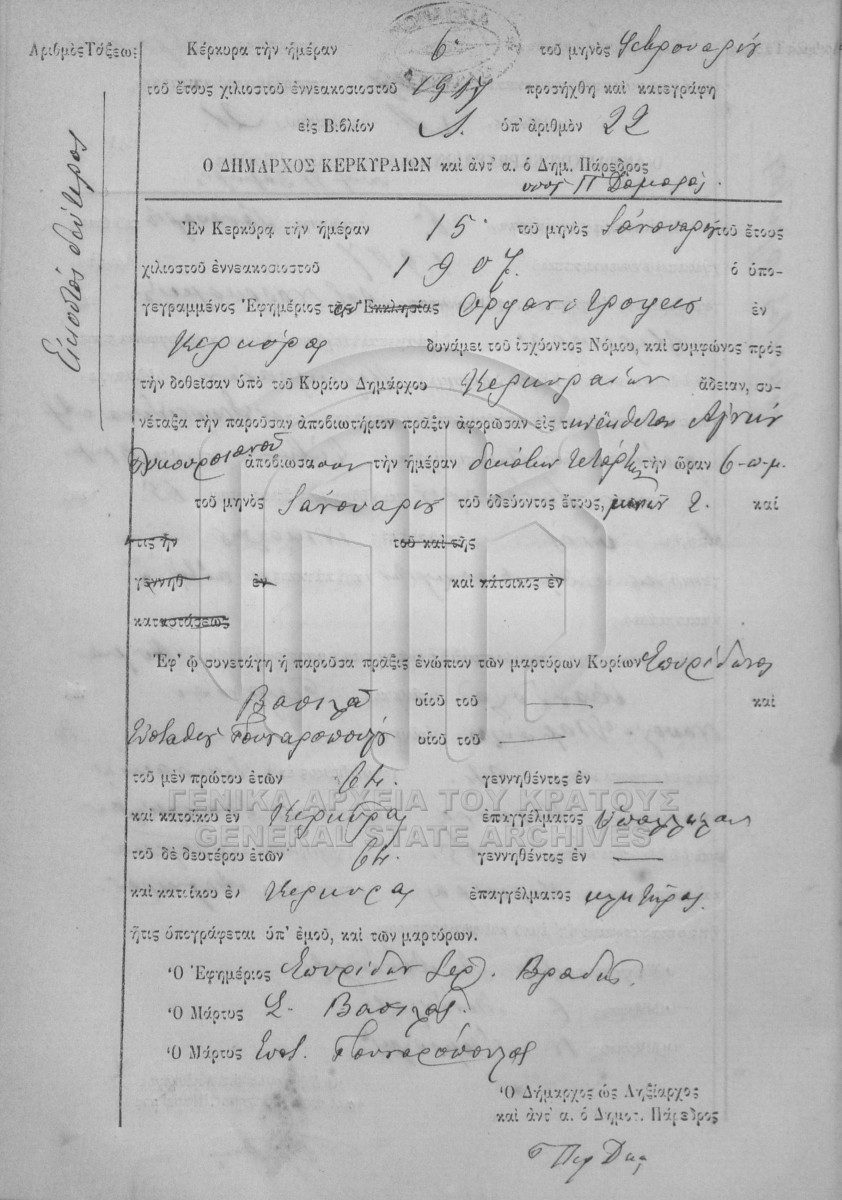 Ἀριθμὸς Τάξεως
Εἰκοστὸς δεύτερος
Κέρκυρα τὴν ἡμέραν 6 τοῦ μηνὸς Φεβρουαρίου
τοῦ ἔτους χιλιοστοῦ ἐννεακοσιοστοῦ 1907 προσήχθη καὶ κατεγράφη
εἰς Βιβλίον Α. ὑπ' ἀριθμὸν 22
Ὁ ΔΗΜΑΡΧΟΣ ΚΕΡΚΥΡΑΙΩΝ καὶ ἀντ' α. ὁ Δημ. Πάρεδρος
Ἐν Κερκύρᾳ τὴν ἡμέραν 15 τοῦ μηνὸς Ἰανουαρίου τοῦ ἔτους
χιλιοστοῦ ἐννεακοσιοστοῦ 1907. ὁ ὑπο-
γεγραμμένος Ἐφημέριος τῆς Ἐκκλησίας Ὀρφανοτροφείου ἐν
Κερκύρας δυνάμει τοῦ ἰσχύοντος Νόμου, καὶ συμφώνος πρὸς
τὴν δοθεῖσαν ὑπὸ τοῦ Κυρίου Δημάρχου Κερκυραίων ἄδειαν, συ-
νέταξα τὴν παροῦσαν ἀποβιωτήριον πρᾶξιν ἀφορῶσαν εἰς τὴν ἔκθετον
ἀποβιώσασαν τὴν ἡμέραν δεκάτην τετάρτην τὴν ὥραν 6 π.μ.
τοῦ μηνὸς Ἰανουαρίου τοῦ ὁδεύοντος ἔτους, μηνῶν 2. καὶ
τις ἦν τοῦ καὶ τῆς
γεννηθ ἐν καὶ κάτοικος ἐν
καταστάσεως
Ἐφ' ᾧ συνετάγη ἡ παροῦσα πρᾶξις ἐνώπιον τῶν μαρτύρων Κυρίων Σπυρίδωνος
Βασιλᾶ υἱοῦ τοῦ — καὶ
Εὐσταθίου Γουναροπούλου υἱοῦ τοῦ —
τοῦ μὲν πρώτου ἐτῶν 64. γεννηθέντος ἐν —
ΓΕΝΙΚΑ ΑΡΧΕΙΑ ΤΟΥ ΚΡΑΤΟΥΣ
καὶ κατοίκου ἐν Κερκύρᾳ ἐπαγγέλματος
GENERAL STATE ARCHIVES
τοῦ δὲ δευτέρου ἐτῶν 64. γεννηθέντος ἐν —
καὶ κατοίκου ἐν Κερκύρᾳ ἐπαγγέλματος κλητῆρος
ἥτις ὑπογράφεται ὑπ' ἐμοῦ, καὶ τῶν μαρτύρων.
Ὁ Ἐφημέριος Σπυρίδων Ἱερ.
Ὁ Μάρτυς Σ. Βασιλᾶς
Ὁ Μάρτυς Εὐστ. Γουναρόπουλος
Ὁ Δήμαρχος ὡς Ληξίαρχος
καὶ ἀντ' α. ὁ Δημοτ. Πάρεδρος